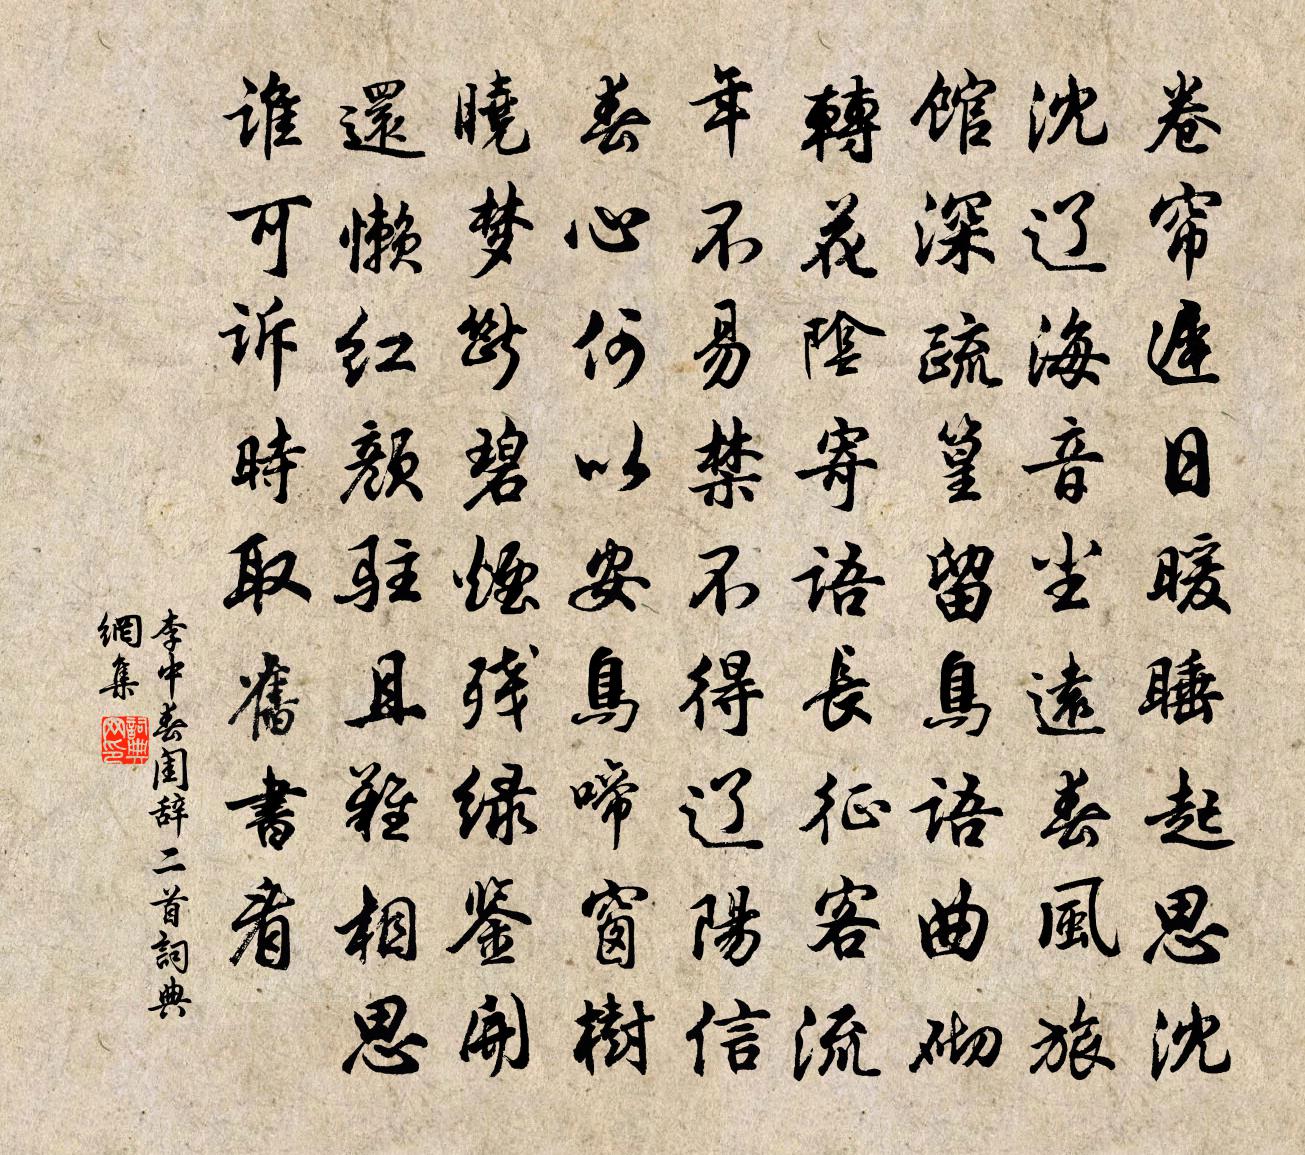 卷帘遲日暖睡起思沈
沈辽海音尘遠春風旅
馆深疏篁留鳥語曲砌
轉花陰寄語長征客流
年不易禁不得辽陽信
春心何以安鳥啼窗樹
曉梦斷碧煙残绿鉴開
還懒红颜驻且難相思
谁可诉時取舊書看
李中春闺辞二首詞典
網集
詞典网印